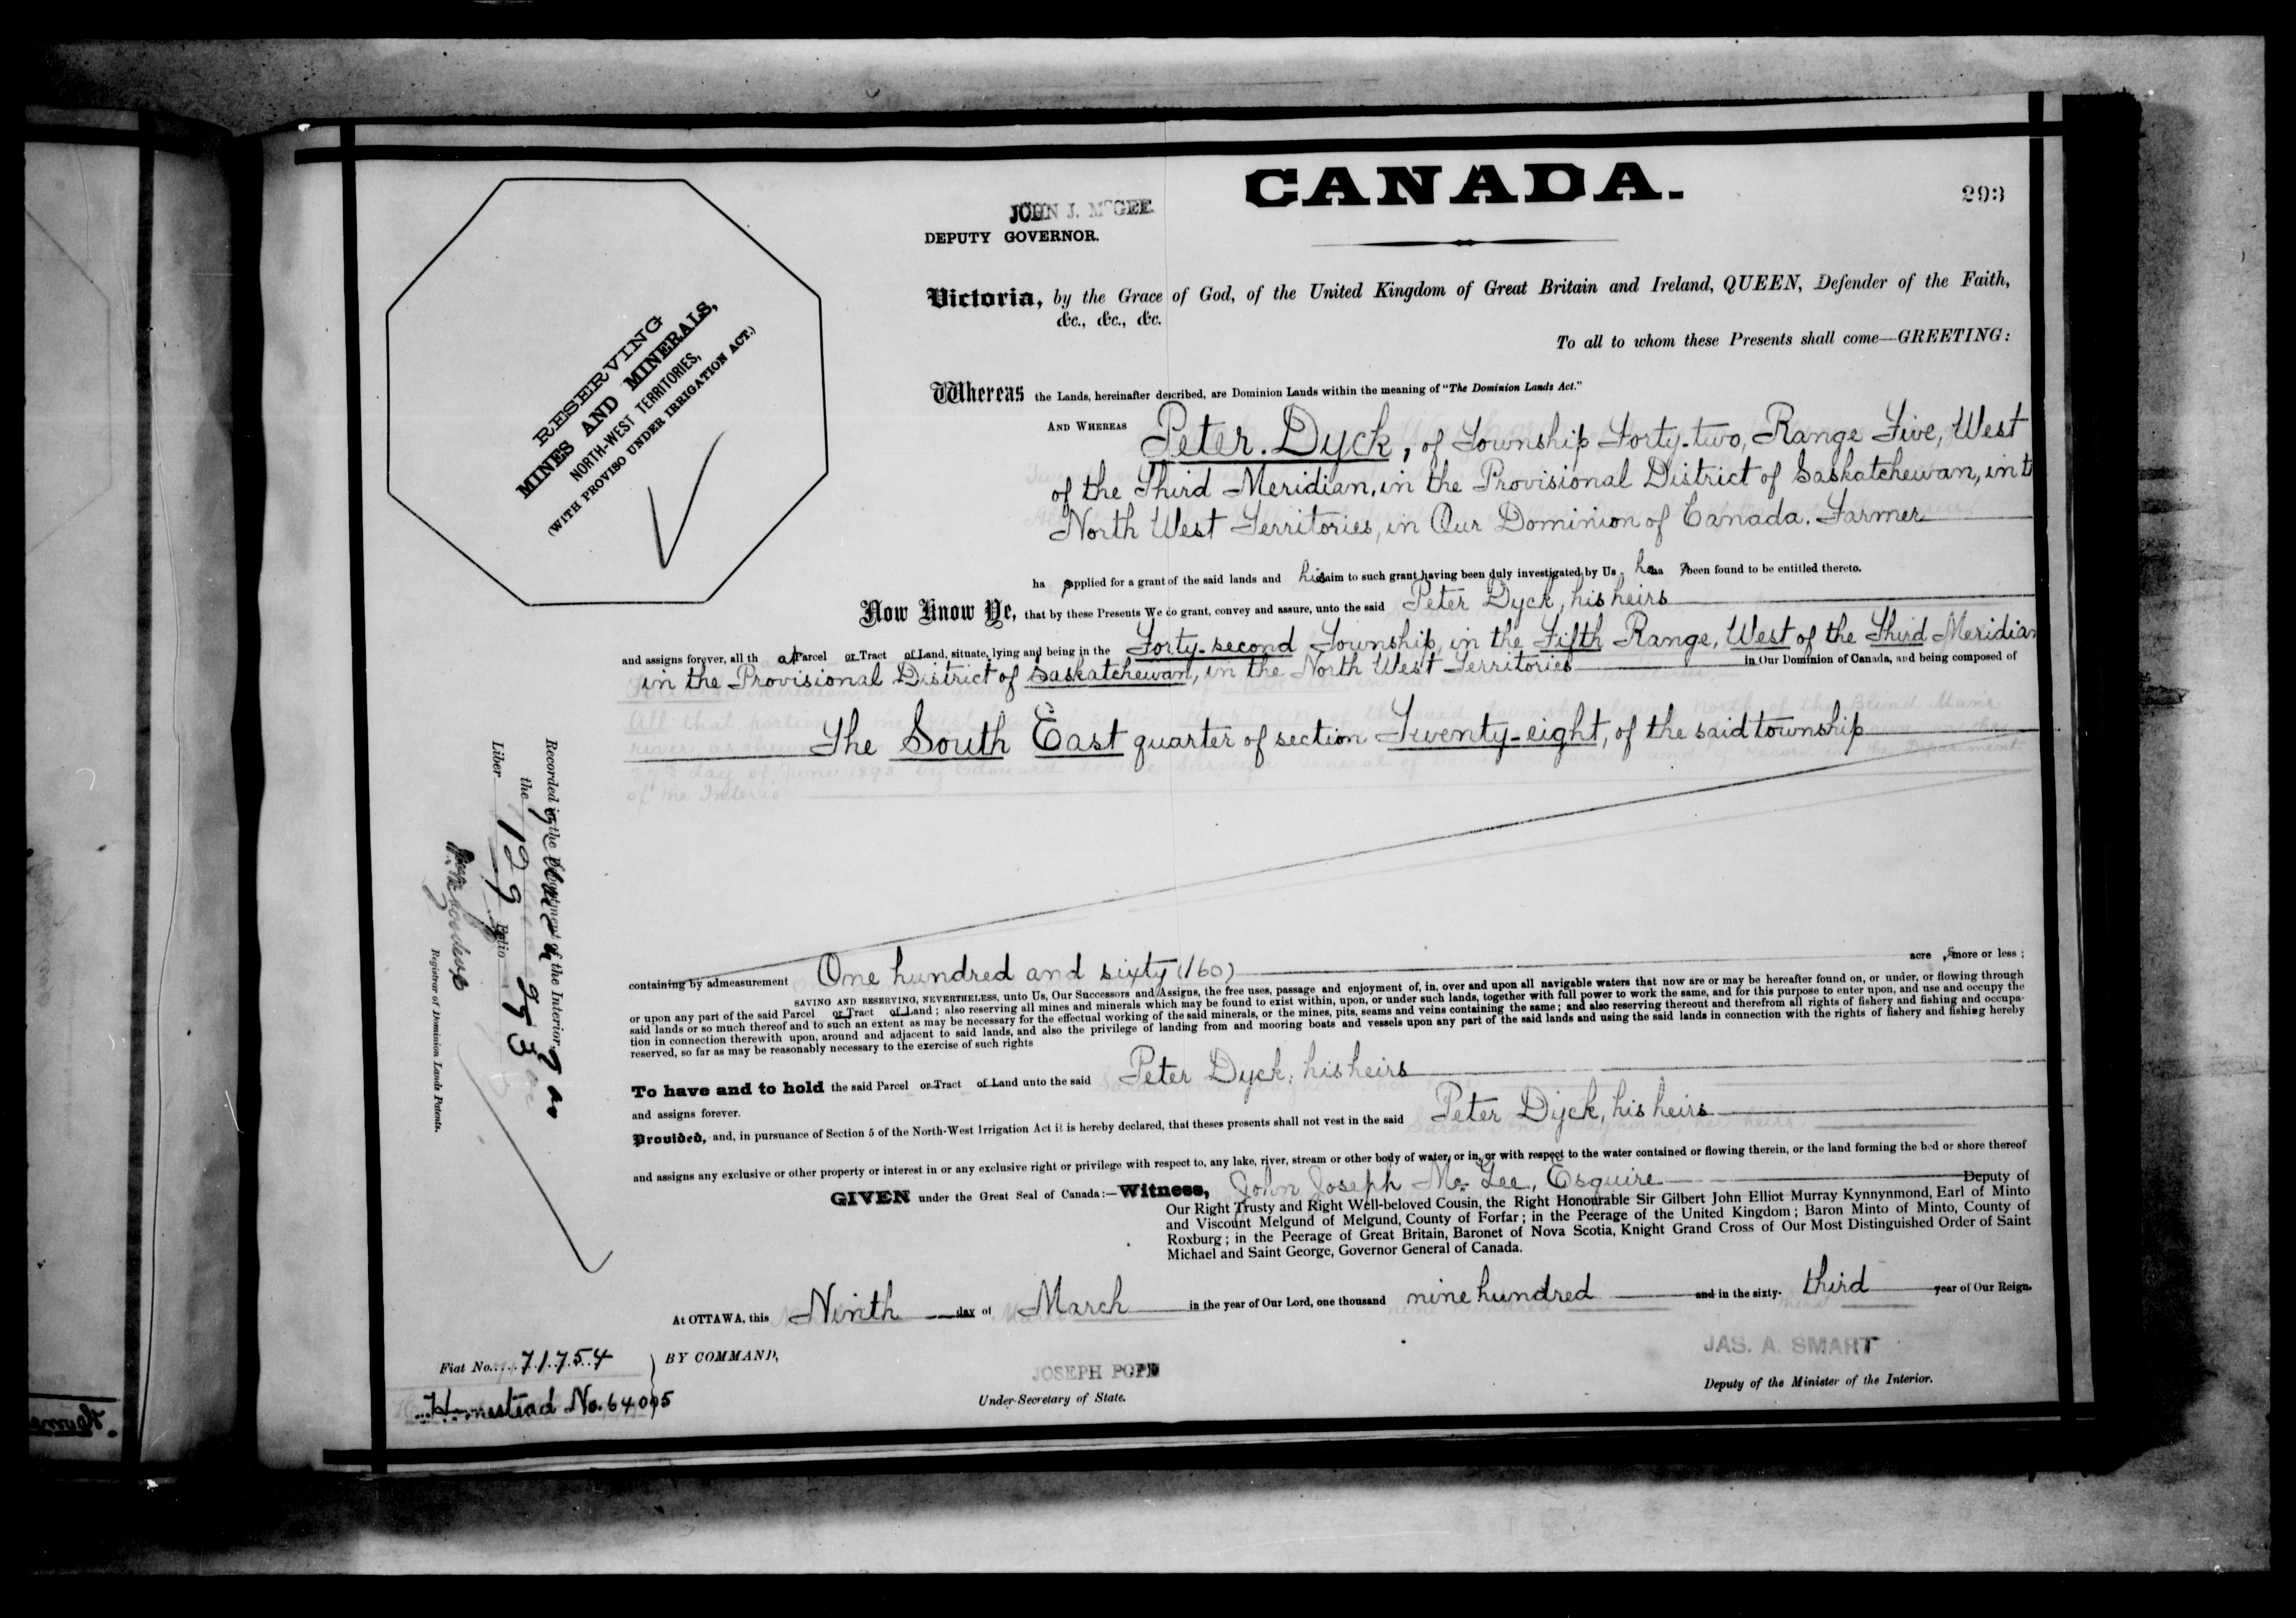 CANADA.
293
JOHN J. McGEE.
DEPUTY GOVERNOR.
RESERVING
MINES AND MINERALS,
NORTH-WEST TERRITORIES,
(WITH PROVISO UNDER IRRIGATION ACT.)
Victoria, by the Grace of God, of the United Kingdom of Great Britain and Ireland, QUEEN, Defender of the Faith,
&c., &c., &c.
To all to whom these Presents shall come—GREETING:
Whereas the Lands, hereinafter described, are Dominion Lands within the meaning of "The Dominion Lands Act."
AND WHEREAS Peter Dyck, of Township Forty-two, Range Five, West
of the Third Meridian, in the Provisional District of Saskatchewan, in t
North West Territories, in Our Dominion of Canada. Farmer
ha s applied for a grant of the said lands and his claim to such grant having been duly investigated by Us, he ha s been found to be entitled thereto.
Now Know Ye, that by these Presents We do grant, convey and assure, unto the said Peter Dyck, his heirs
and assigns forever, all th at Parcel or Tract of Land, situate, lying and being in the Forty-second Township, in the Fifth Range, West of the Third Meridian
in the Provisional District of Saskatchewan, in the North West Territories in Our Dominion of Canada, and being composed of
The South East quarter of section Twenty-eight, of the said township
containing by admeasurement One hundred and sixty (160) acre s, more or less;
SAVING AND RESERVING, NEVERTHELESS, unto Us, Our Successors and Assigns, the free uses, passage and enjoyment of, in, over and upon all navigable waters that now are or may be hereafter found on, or under, or flowing through
or upon any part of the said Parcel or Tract of Land; also reserving all mines and minerals which may be found to exist within, upon, or under such lands, together with full power to work the same, and for this purpose to enter upon, and use and occupy the
said lands or so much thereof and to such an extent as may be necessary for the effectual working of the said minerals, or the mines, pits, seams and veins containing the same; and also reserving thereout and therefrom all rights of fishery and fishing and occupa-
tion in connection therewith upon, around and adjacent to said lands, and also the privilege of landing from and mooring boats and vessels upon any part of the said lands and using the said lands in connection with the rights of fishery and fishing hereby
reserved, so far as may be reasonably necessary to the exercise of such rights
To have and to hold the said Parcel or Tract of Land unto the said Peter Dyck, his heirs
and assigns forever.
Provided, and, in pursuance of Section 5 of the North-West Irrigation Act it is hereby declared, that theses presents shall not vest in the said Peter Dyck, his heirs
and assigns any exclusive or other property or interest in or any exclusive right or privilege with respect to, any lake, river, stream or other body of water, or in, or with respect to the water contained or flowing therein, or the land forming the bed or shore thereof
GIVEN under the Great Seal of Canada:—Witness, John Joseph McGee, Esquire Deputy of
Our Right Trusty and Right Well-beloved Cousin, the Right Honourable Sir Gilbert John Elliot Murray Kynnynmond, Earl of Minto
and Viscount Melgund of Melgund, County of Forfar; in the Peerage of the United Kingdom; Baron Minto of Minto, County of
Roxburg; in the Peerage of Great Britain, Baronet of Nova Scotia, Knight Grand Cross of Our Most Distinguished Order of Saint
Michael and Saint George, Governor General of Canada.
At OTTAWA, this Ninth day of March in the year of Our Lord, one thousand nine hundred and in the sixty-third year of Our Reign.
BY COMMAND,
JOSEPH POPE
Under-Secretary of State.
JAS. A. SMART
Deputy of the Minister of the Interior.
Fiat No. 71754
Homestead No. 64005
Recorded in the Department of the Interior
the
Liber 129 Folio 293
Registrar of Dominion Lands Patents.